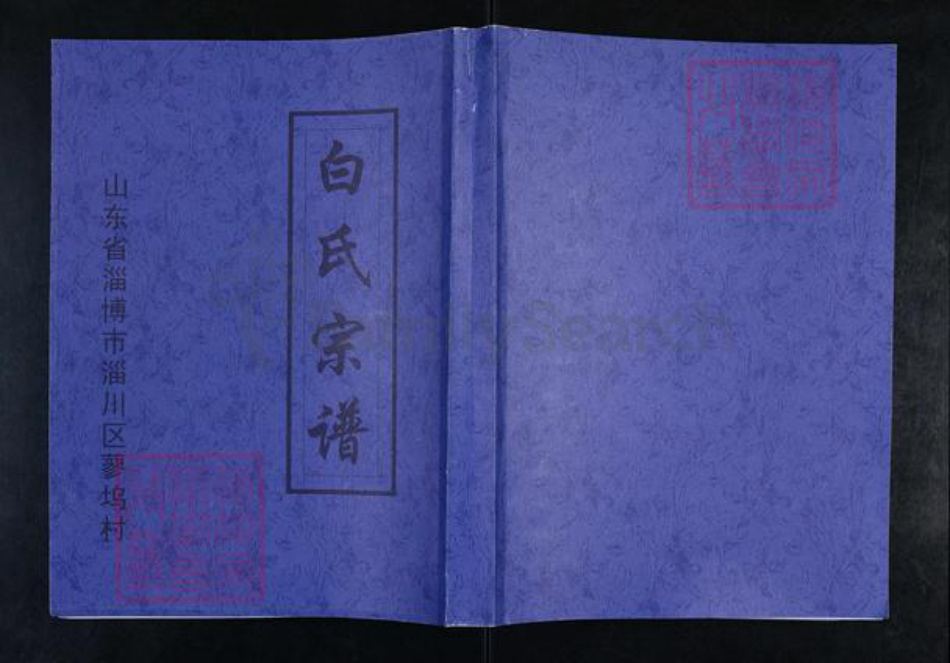 白氏宗谱
山东省淄博市淄川区蓼坞村
FamilySearch